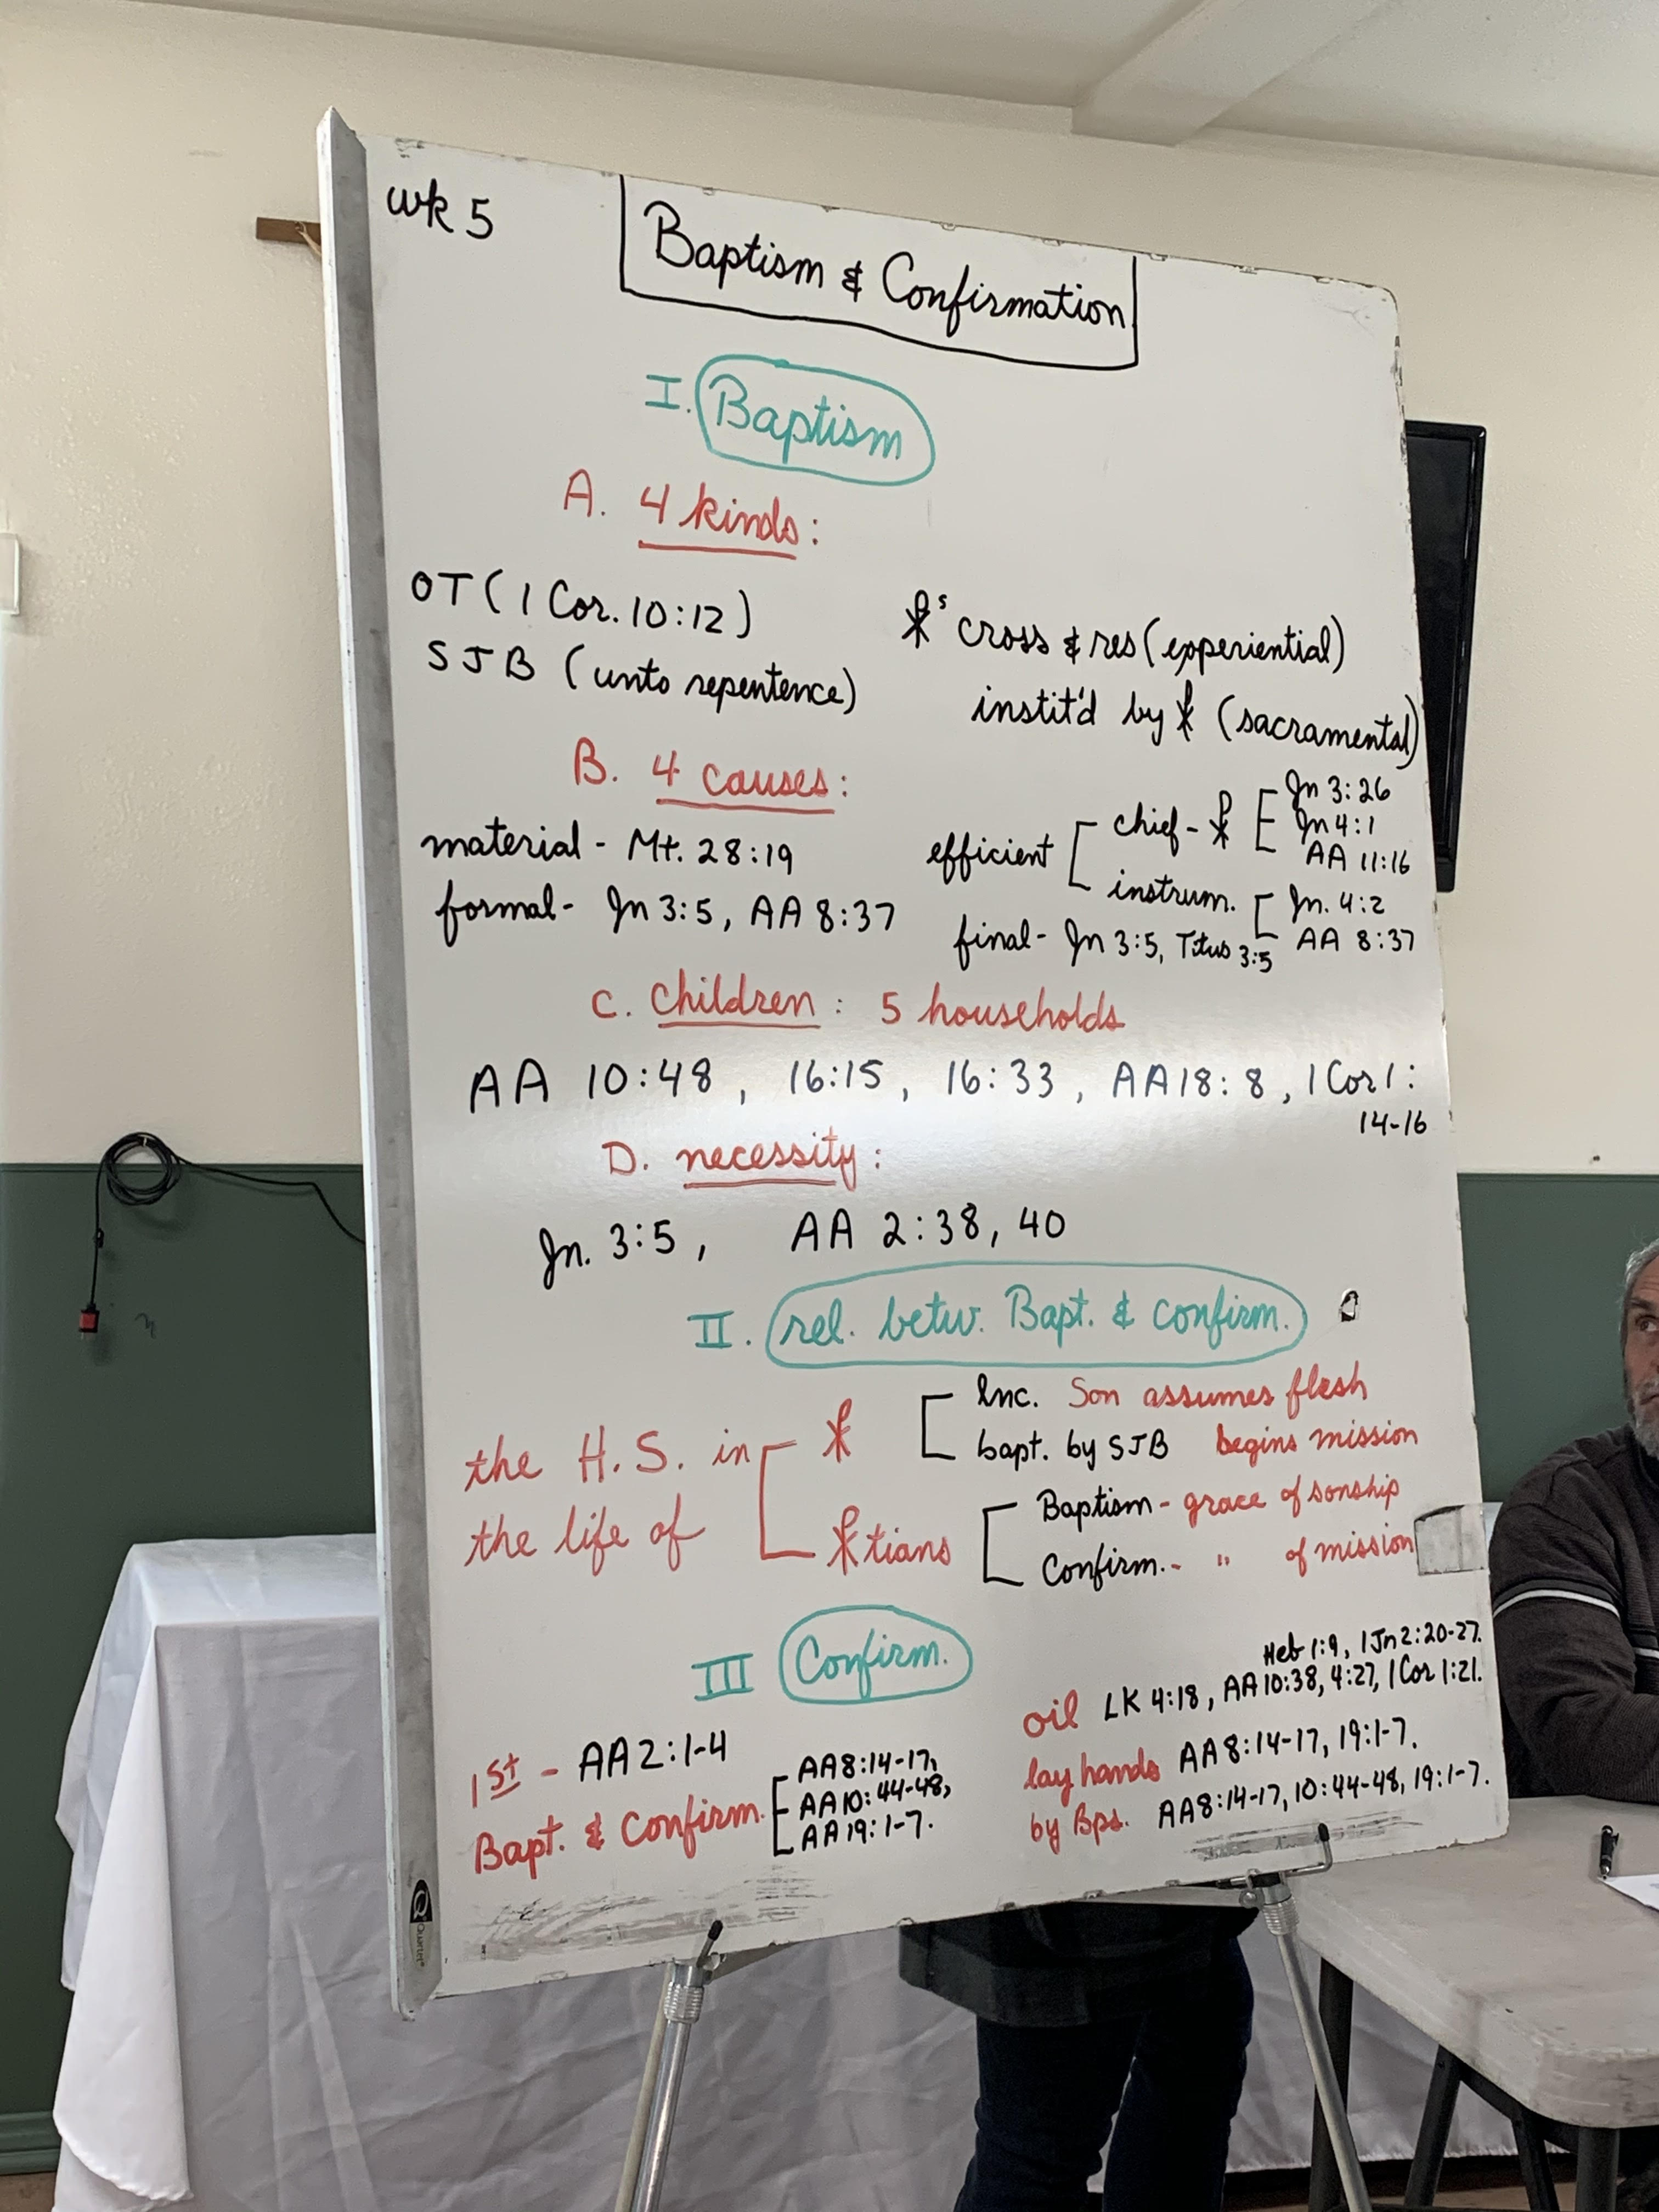 wk 5
Baptism & Confirmation
I. Baptism
A. 4 kinds:
OT (1 Cor. 10:12)
SJB (unto repentence)
☧'s cross & res (experiential)
instit'd by ☧ (sacramental)
B. 4 causes:
material - Mt. 28:19
formal - Jn 3:5, AA 8:37
efficient
chief - ☧
Jn 3:26
Jn 4:1
AA 11:16
instrum.
Jn. 4:2
AA 8:37
final - Jn 3:5, Titus 3:5
C. Children: 5 households
AA 10:48, 16:15, 16:33, AA 18:8, 1 Cor 1:
14-16
D. necessity:
Jn. 3:5, AA 2:38, 40
II. rel. betw. Bapt. & confirm.
the H.S. in
the life of
☧
Inc. Son assumes flesh
bapt. by SJB begins mission
☧tians
Baptism - grace of sonship
Confirm. - " of mission
III Confirm.
1st - AA 2:1-4
Bapt. & Confirm.
AA 8:14-17,
AA 10:44-48,
AA 19:1-7.
Heb 1:9, 1 Jn 2:20-27.
oil LK 4:18, AA 10:38, 4:27, 1 Cor 1:21.
lay hands AA 8:14-17, 19:1-7.
by Bps. AA 8:14-17, 10:44-48, 19:1-7.
Quartet